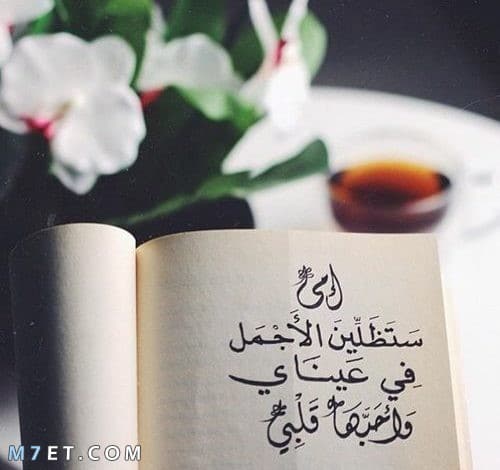 إمي
ستظلين الأجمل
في عيناي
وأحبها قلبي
M7ET.COM